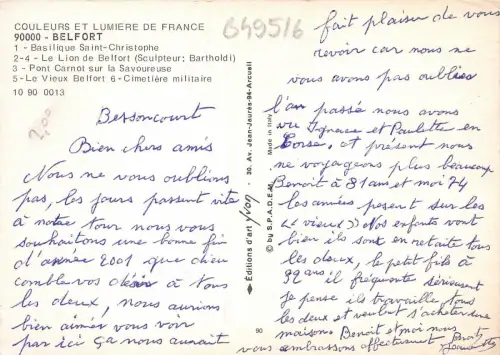 COULEURS ET LUMIERE DE FRANCE
90000 - BELFORT
1 - Basilique Saint-Christophe
2-4 - Le Lion de Belfort (Sculpteur; Bartholdi)
3 - Pont Carnot sur la Savoureuse
5 - Le Vieux Belfort 6 - Cimetière militaire
10 90 0013
B495/6
2,00
Bessoncourt
Bien chers amis
Nous ne vous oublions
pas, les jours passent vite
à notre tour nous vous
souhaitons une bonne fin
d'année 2001 que dieu
comble vos désir à Tous
les deux, nous aurions
bien aimer vous voir
par ici ça nous aurait
Editions d'art yvon 30, Av. Jean-Jaurès-94-Arcueil
© by S.P.A.D.E.M. Made in Italy
90
fait plaisir de vous
revoir car nous ne
vous avons pas oubliés
l'an passé nous avons
vu Ignace et Paulette en
Corse, et présent nous
ne voyageons plus beaucoup
Benoit à 81 ans et moi 74
les années pesent sur les
« vieux » Nos enfants vont
bien ils sont en retaite tous
les deux, le petit fils à
32 ans il fréquente sérieusement
je pense ils travaille tous
les deux et veulent s'acheter une
maison. Benoit et moi nous
vous embrassons affectueusement